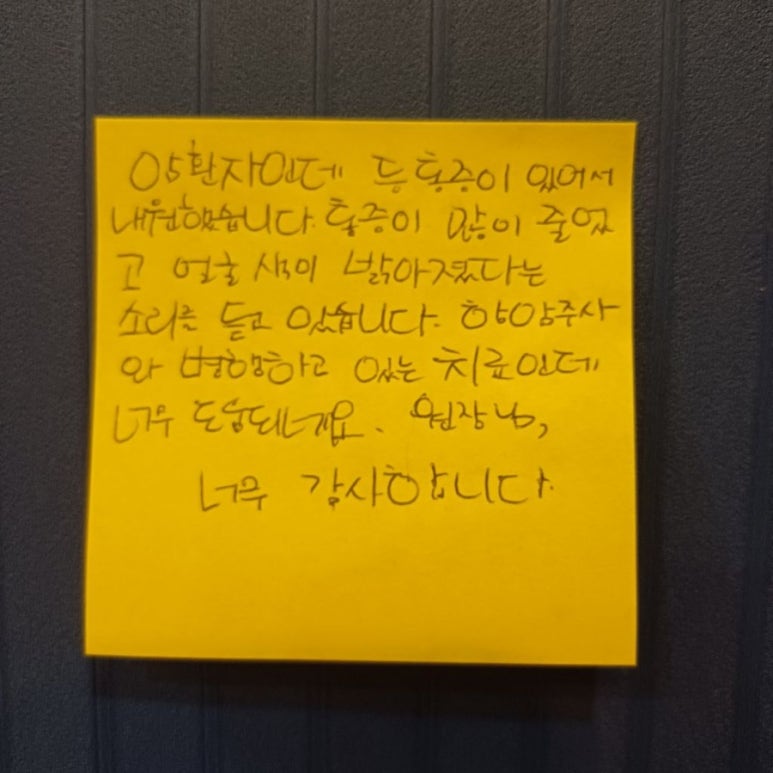 암환자인데 등 통증이 있어서
내원했습니다. 통증이 많이 줄었
고 얼굴 색이 밝아졌다는
소리를 듣고 있습니다. 항암주사
와 병행하고 있는 치료인데
너무 도움되네요. 원장님,
너무 감사합니다.